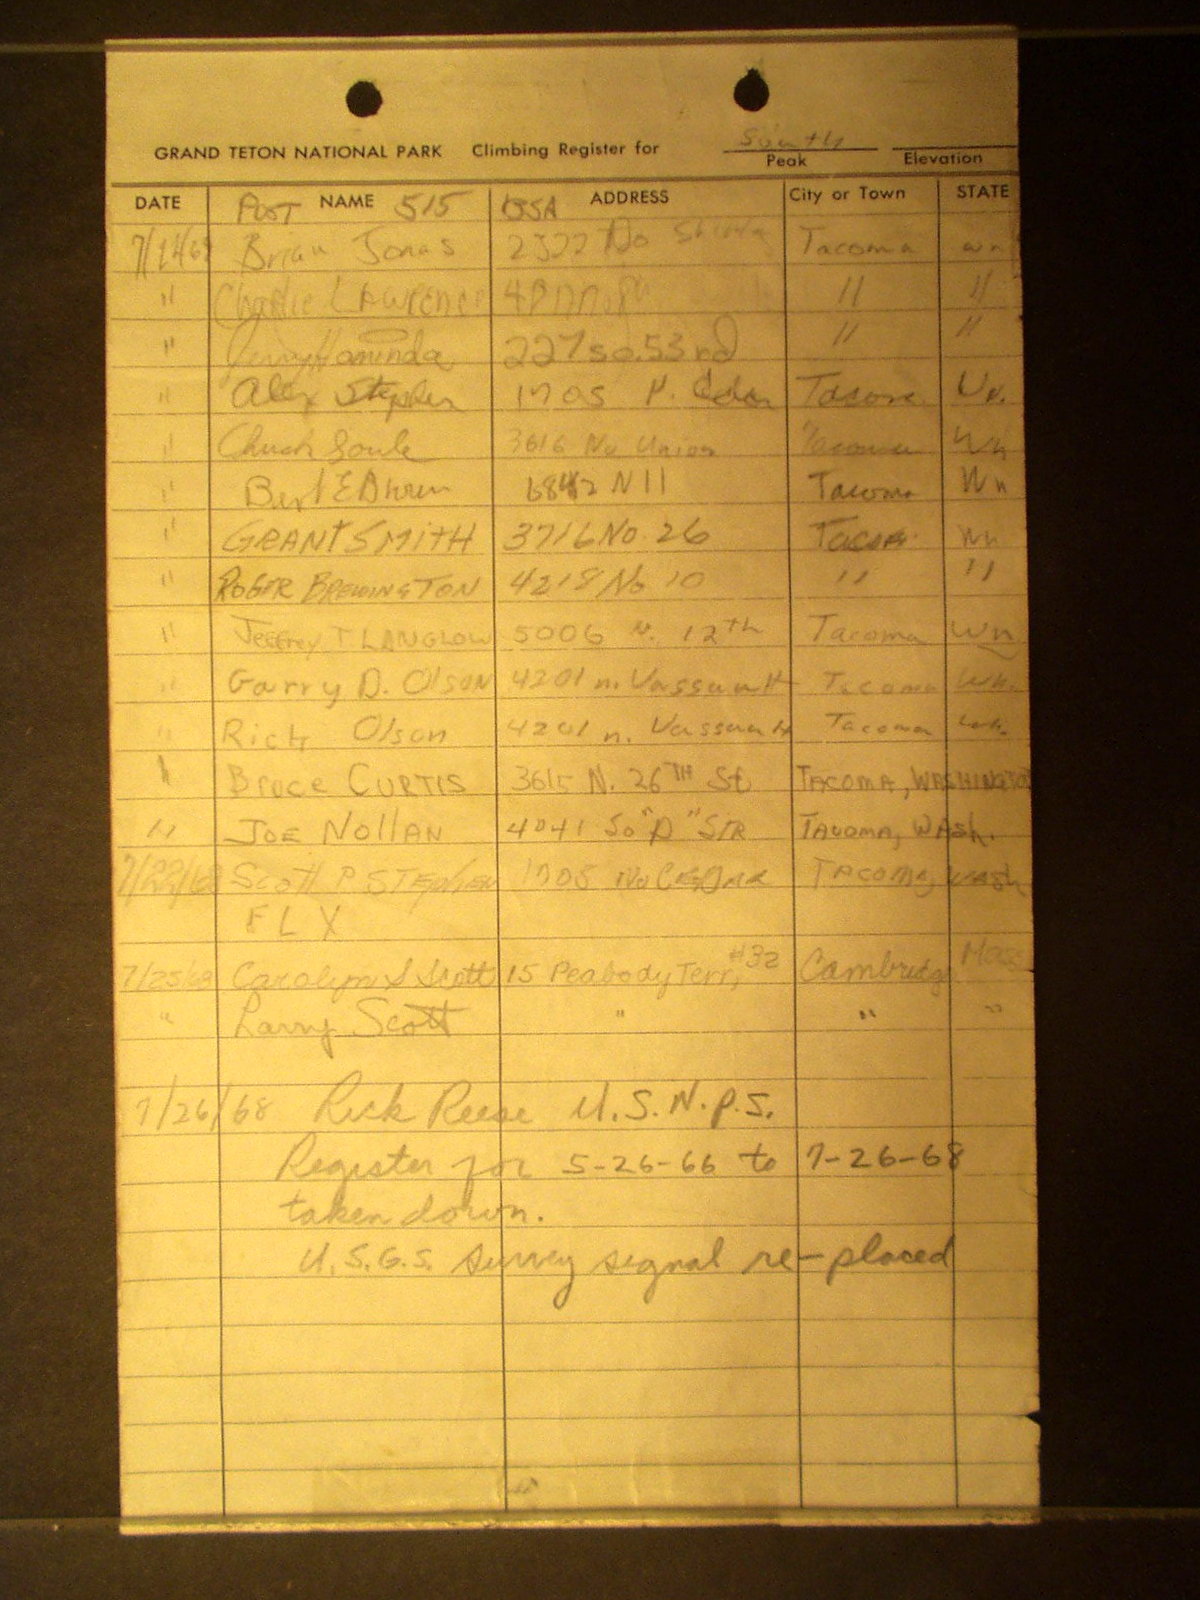 South
GRAND TETON NATIONAL PARK Climbing Register for
Peak Elevation
DATE NAME ADDRESS City or Town STATE
POST 515 BSA
Brian Jonas No Tacoma wn
" Charlie LAWRENCE " "
" Jerry 227 so. 53rd " "
" Alex Stephen 1705 Tacoma
" Chuck Soule 3616 No Union Tacoma Wn
" Bert 6842 N 11 Tacoma Wn
" GRANT SMITH 3716 No. 26 Wn
" ROGER BREWINGTON 4218 No 10 " "
" Jeffrey T. LANGLOW 5006 N. 12th Tacoma Wn
" Garry D. Olson 4201 n. Vassault Tacoma Wn.
" Rich Olson 4201 n. Vassault Tacoma
Bruce CURTIS 3615 N. 26TH St TACOMA, WASHINGTON
" JOE NOllAN 4041 So "D" STR TACOMA, WASh.
7/22/68 Scott P STEPHEN 1705 No CEDAR TACOMA, Wash
F L X
7/25/68 Carolyn S Scott 15 Peabody Terr, #32 Cambridge Mass
" Larry Scott " " "
7/26/68 Rick Reese U.S.N.P.S.
Register for 5-26-66 to 7-26-68
taken down.
U.S.G.S. survey signal re-placed